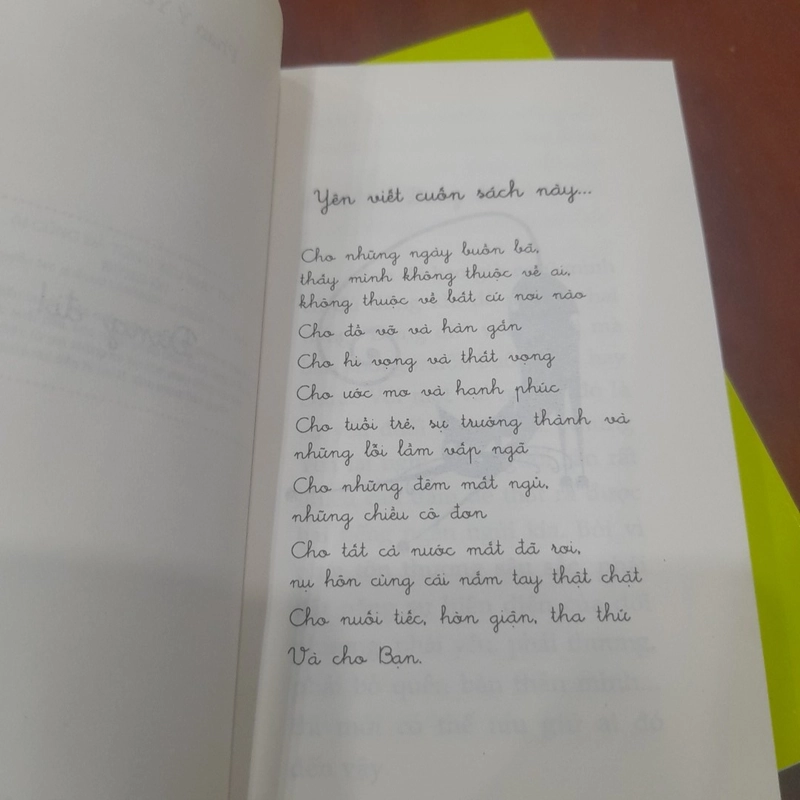 Yên viết cuốn sách này...
Cho những ngày buồn bã,
thấy mình không thuộc về ai,
không thuộc về bất cứ nơi nào
Cho đổ vỡ và hàn gắn
Cho hi vọng và thất vọng
Cho ước mơ và hạnh phúc
Cho tuổi trẻ, sự trưởng thành và
những lỗi lầm vấp ngã
Cho những đêm mất ngủ,
những chiều cô đơn
Cho tất cả nước mắt đã rơi,
nụ hôn cùng cái nắm tay thật chặt
Cho nuối tiếc, hờn giận, tha thứ
Và cho Bạn.